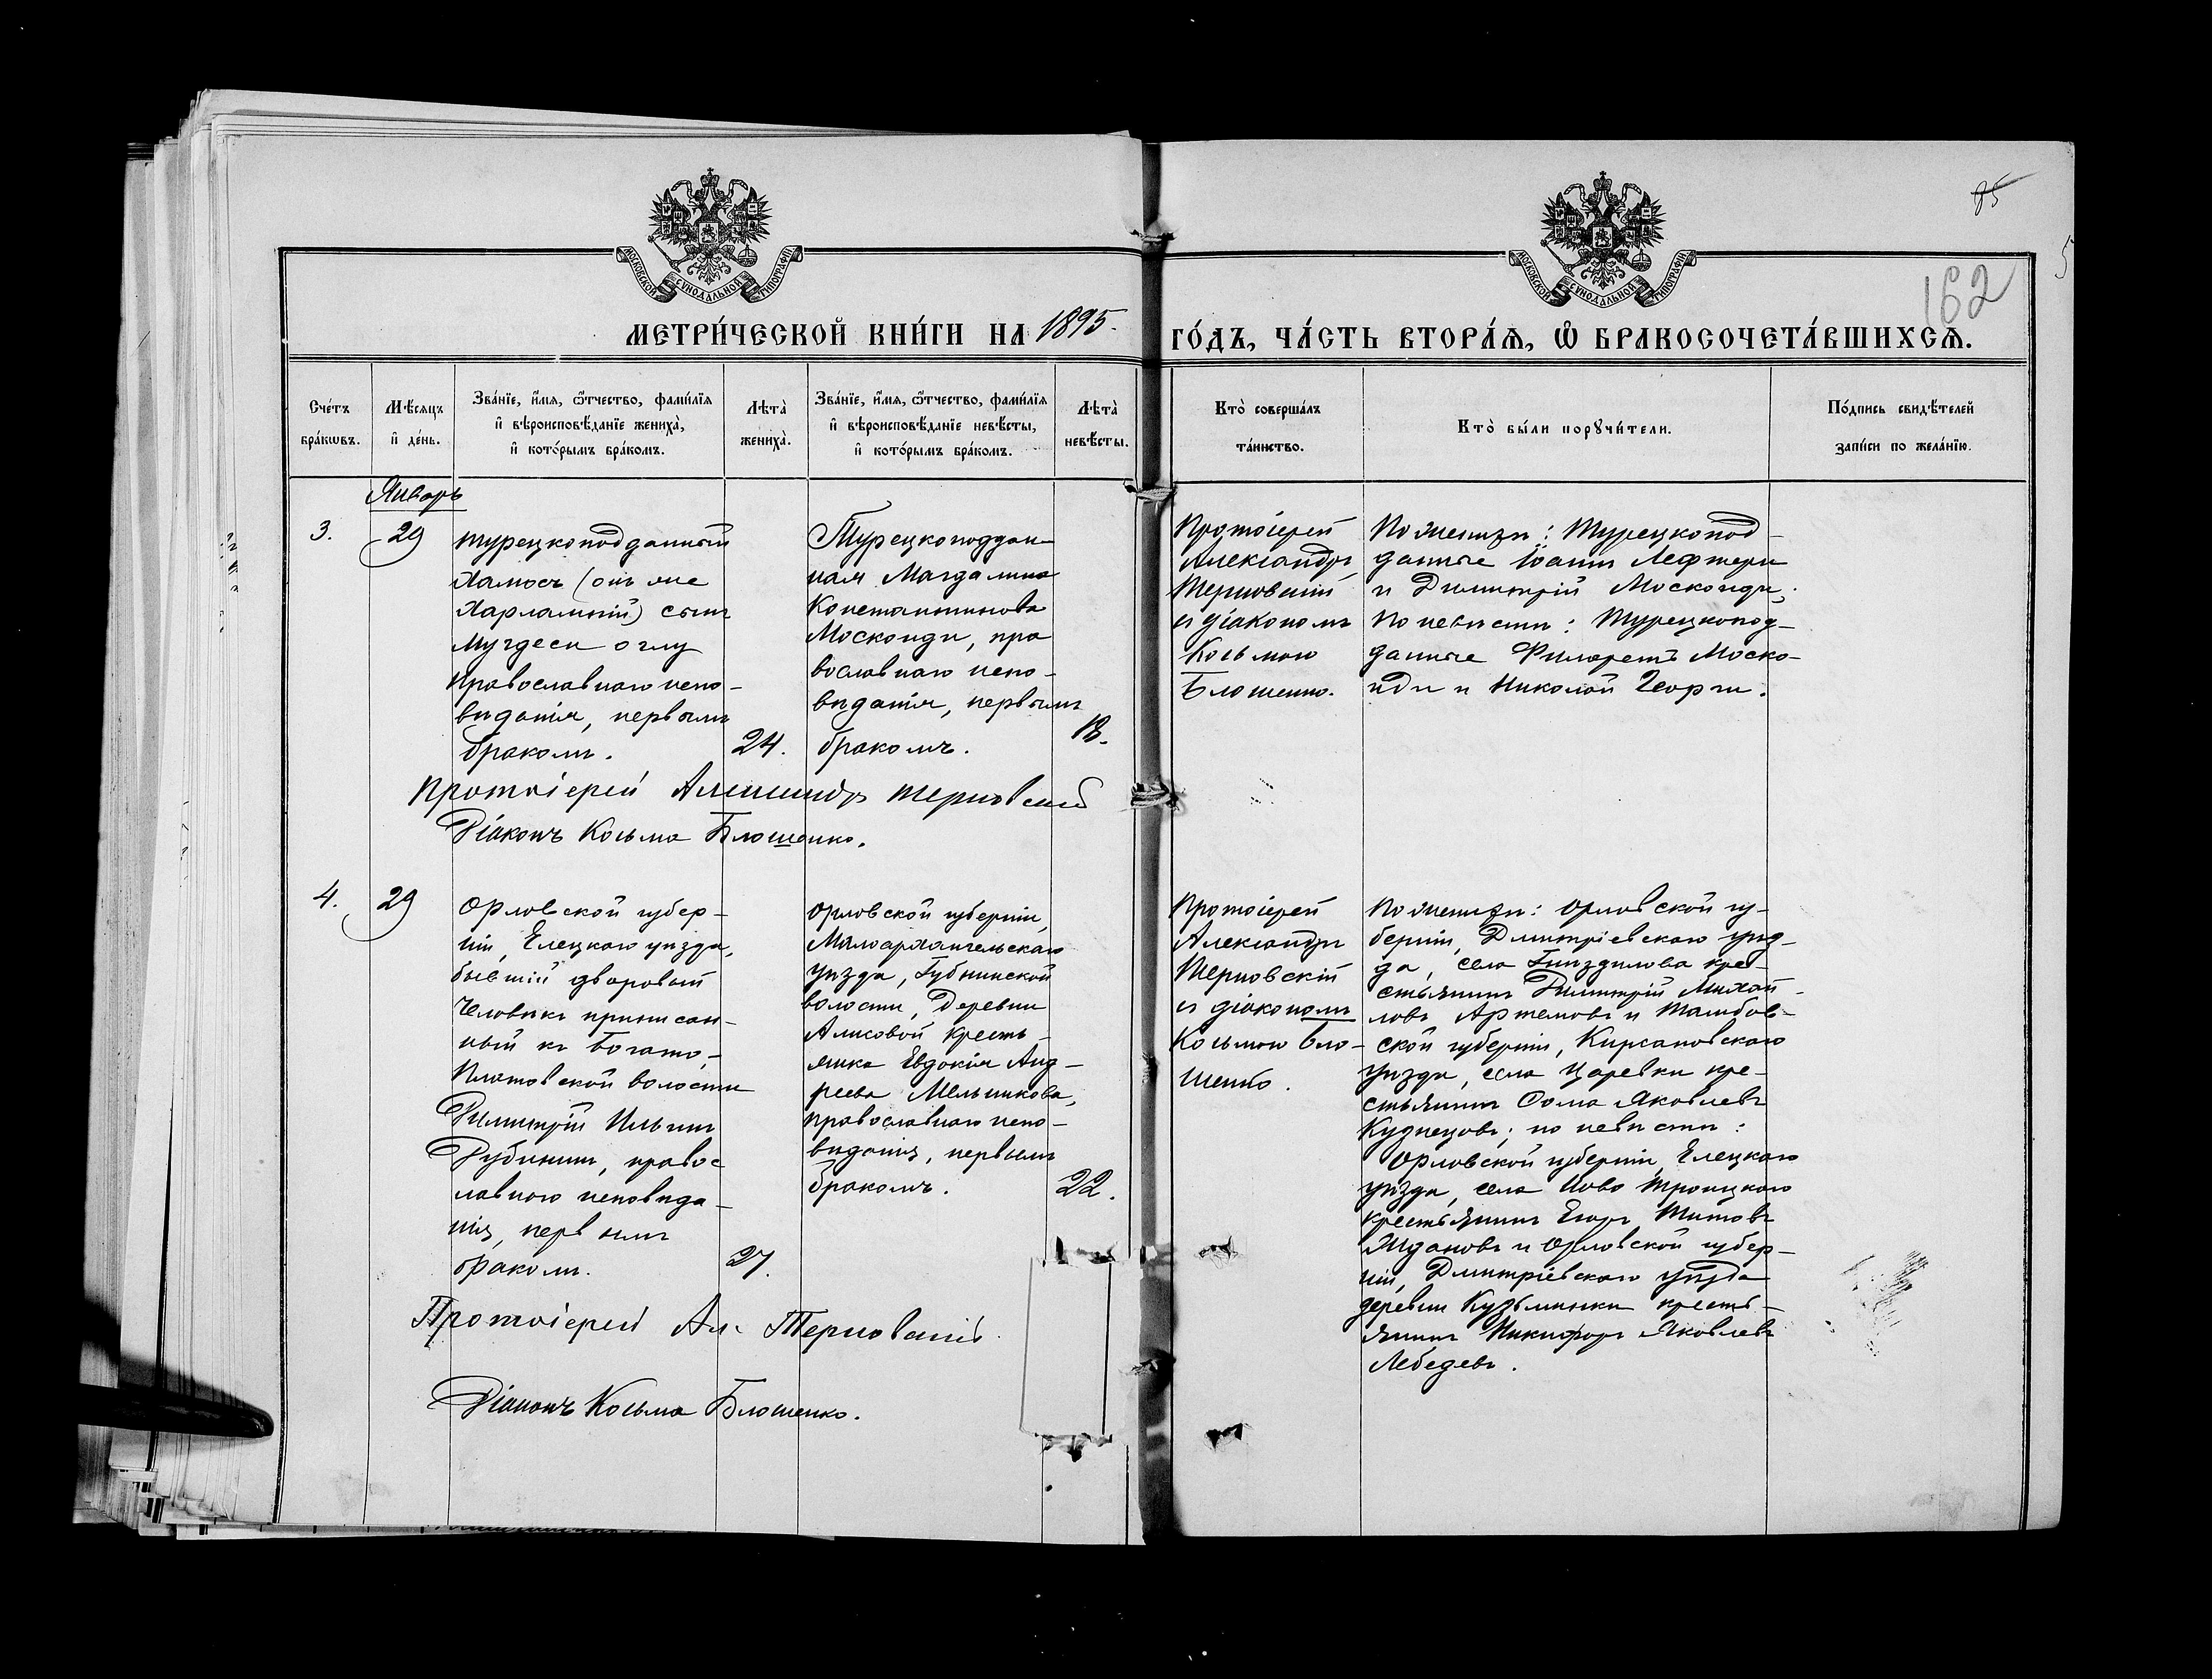 95
5
162
МОСКОВСКОЙ СѴНОДАЛЬНОЙ ТИПОГРАФІИ
МОСКОВСКОЙ СѴНОДАЛЬНОЙ ТИПОГРАФІИ
МЕТРИ́ЧЕСКОЙ КНИ́ГИ НА 1895. ГО́ДЪ, ЧА́СТЬ ВТОРА́Ѧ, Ѡ҆ БРАКОСОЧЕТА́ВШИХСѦ.
Сче́тъ бра́кѡвъ.
Мѣ́сѧцъ и҆ де́нь.
Зва́нїе, и҆́мѧ, ѻ҆́тчество, фами́лїѧ
и҆ вѣроисповѣ́данїе жениха̀,
и҆ кото́рымъ бра́комъ.
Лѣта̀ жениха̀.
Зва́нїе, и҆́мѧ, ѻ҆́тчество, фами́лїѧ
и҆ вѣроисповѣ́данїе невѣ́сты,
и҆ кото́рымъ бра́комъ.
Лѣта̀ невѣ́сты.
Кто̀ соверша́лъ
та́инство.
Кто̀ бы́ли порꙋчи́тели.
По́дпись свидѣ́телей
за́писи по жела́нїю.
Январь
3.
29
турецкоподданный
Хамосъ (онъ же
Харлампій) сынъ
Мугдеси оглу
православнаго испо-
вѣданія, первымъ
бракомъ.
24.
Турецкоподдан-
ная Магдалина
Константинова
Москоиди, пра
вославнаго испо-
вѣданія, первымъ
бракомъ.
18.
Протоіерей
Александръ
Терновскій
съ діакономъ
Косьмою
Блошенко.
По женихѣ: Турецкопод-
данные Іоаннъ Лефтери
и Димитрій Москоиди;
по невѣстѣ: Турецкопод-
данные Филаретъ Моско-
иди и Николай Георги.
Протоіерей Александръ Терновскій
Діаконъ Косьма Блошенко.
4.
29
Орловской губер-
ніи, Елецкаго уѣзда,
бывшій дворовый
человѣкъ приписан-
ный къ Богато-
Платовской волости
Димитрій Ильинъ
Рубинъ, правос
лавнаго исповѣда-
нія, первымъ
бракомъ.
27.
Орловской губерніи,
Малоархангельскаго
уѣзда, Губкинской
волости, Деревни
Алисовой кресть-
янка Евдокія Анд-
реева Мельникова,
православнаго испо-
вѣданія, первымъ
бракомъ.
22.
Протоіерей
Александръ
Терновскій
съ діакономъ
Косьмою Бло-
шенко.
По женихѣ: Орловской гу-
берніи, Дмитріевскаго уѣз-
да, села Гнѣздилова кре-
стьянинъ Димитрій Михай-
ловъ Артемовъ и Тамбов-
ской губерніи, Кирсановскаго
уѣзда, села Царевки кре-
стьянинъ Ѳома Яковлевъ
Кузнецовъ; по невѣстѣ:
Орловской губерніи, Елецкаго
уѣзда, села Ново Троицкаго
крестьянинъ Егоръ Титовъ
Ждановъ и Орловской губер-
ніи, Дмитріевскаго уѣзда
деревни Кузьминки кресть-
янинъ Никифоръ Яковлевъ
Лебедевъ.
Протоіерей Ал. Терновскій.
Діаконъ Косьма Блошенко.